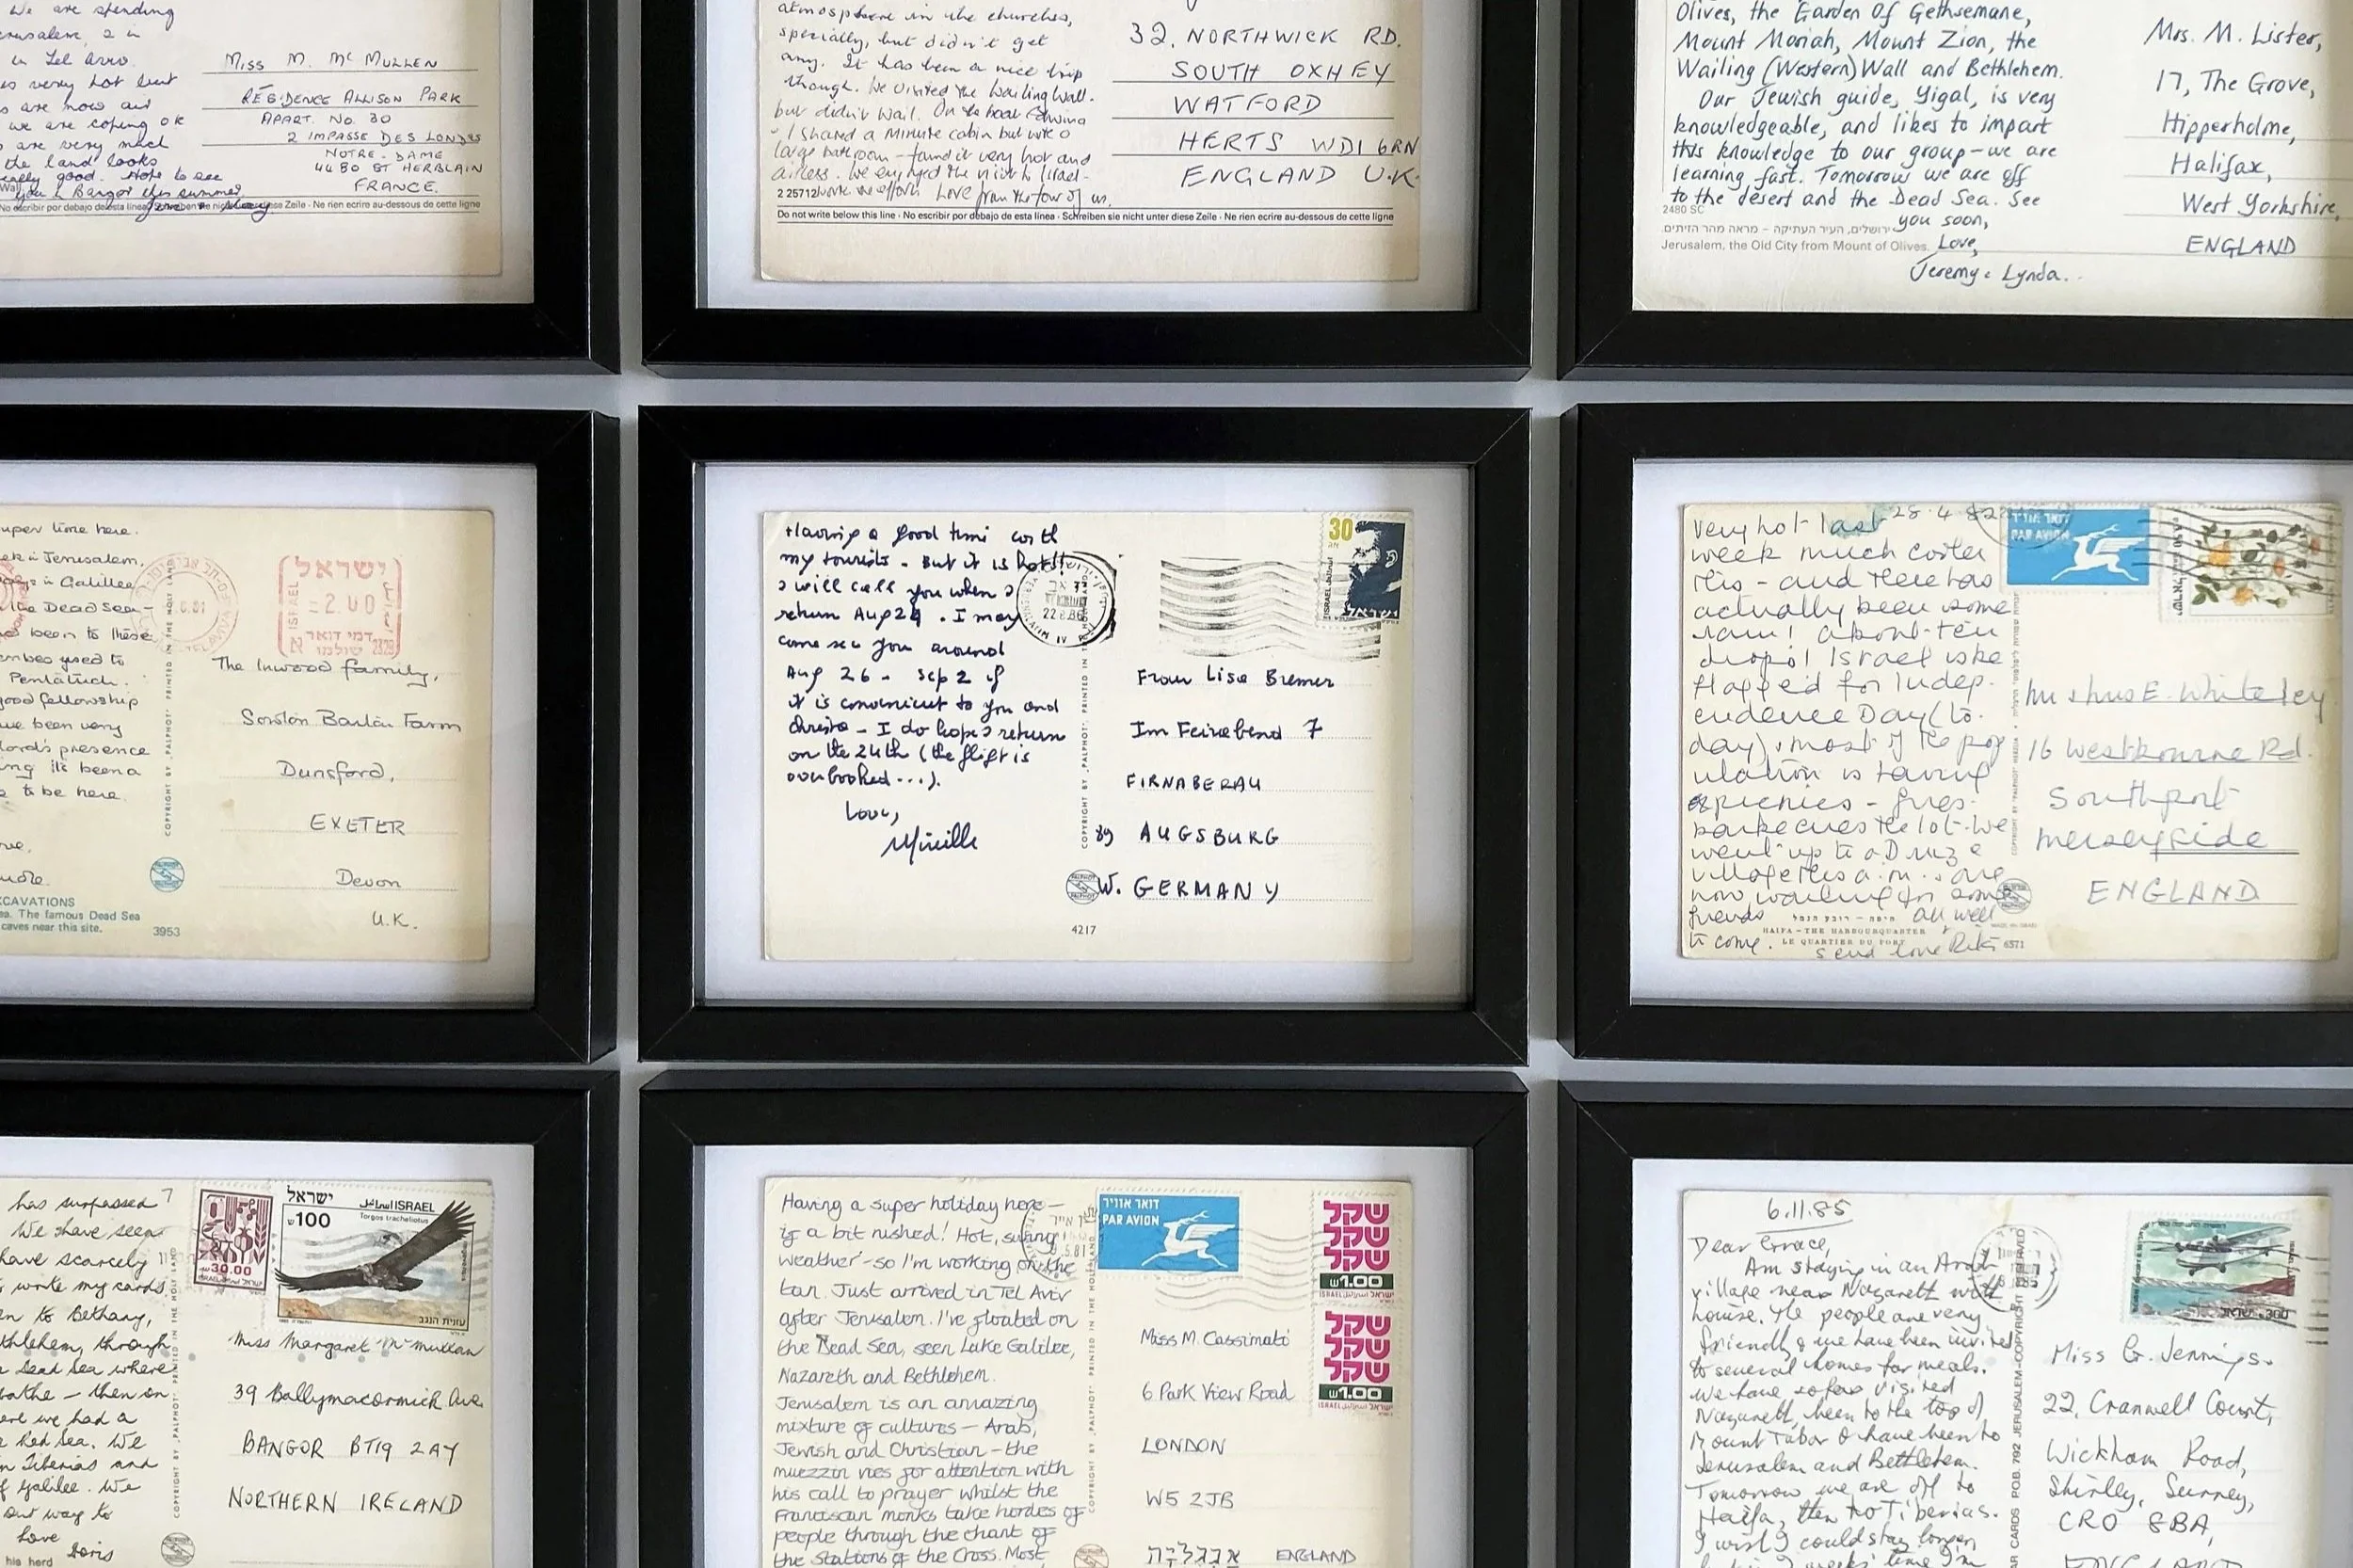 We are spending
2 in
in Tel Aviv.
very hot but
are now and
we are coping ok
are very much
the land looks
really good. Hope to see
you in Bangor this summer
Miss M. McMullen
RÉSIDENCE ALLISON PARK
APART. NO. 30
2 IMPASSE DES LONDES
NOTRE-DAME
ST HERBLAIN
FRANCE.
No escribir por debajo de esta línea · Ne rien ecrire au-dessous de cette ligne
atmosphere in the churches,
specially, but didn't get
any. It has been a nice trip
though. We visited the Wailing Wall.
but didn't wail. On the boat Edwina
+ I shared a minute cabin but with a
large bathroom – found it very hot and
airless. We enjoyed the visit to Israel-
2 25712 Love from the four of us.
32. NORTHWICK RD.
SOUTH OXHEY
WATFORD
HERTS WD1 6RN
ENGLAND U.K.
Do not write below this line · No escribir por debajo de esta línea · Schreiben sie nicht unter diese Zeile · Ne rien ecrire au-dessous de cette ligne
Olives, the Garden Of Gethsemane,
Mount Moriah, Mount Zion, the
Wailing (Western) Wall and Bethlehem.
Our Jewish guide, Yigal, is very
knowledgeable, and likes to impart
this knowledge to our group – we are
learning fast. Tomorrow we are off
to the desert and the Dead Sea. See
you soon,
2480 SC
ירושלים, העיר העתיקה – מראה מהר הזיתים.
Jerusalem, the Old City from Mount of Olives.
Love,
Jeremy & Lynda.
Mrs. M. Lister,
17, The Grove,
Hipperholme,
Halifax,
West Yorkshire,
ENGLAND
super time here.
in Jerusalem,
in Galilee
the Dead Sea –
been to these
used to
Pentatuch.
good fellowship
we been very
Lord's presence
it's been a
to be here.
EXCAVATIONS
The famous Dead Sea
caves near this site.
3953
COPYRIGHT BY "PALPHOT" PRINTED IN THE HOLY LAND
ישראל
ISRAEL
2.00
דמי דואר
שולמו
The Inwood family,
Dunsford,
EXETER
Devon
U.K.
Having a good time with
my tourists. But it is hot!!
I will call you when I
return Aug 24. I may
come see you around
Aug 26 – Sep 2 if
it is convenient to you and
– I do hope I return
on the 24th (the flight is
overbooked...).
Love,
Mireille
COPYRIGHT BY "PALPHOT" PRINTED IN
4217
30
ISRAEL
ישראל
Frau Lisa Bremer
Im Feierabend 7
FIRNABERAU
89 AUGSBURG
W. GERMANY
Very hot last 28.4.82
week much cooler
this – and there has
actually been some
rain! about ten
drops! Israel is be
flagged for Indep-
endence Day (to-
day), most of the pop
ulation is having
picnics – fires-
barbecues the lot. We
went up to a Druze
village this a.m. & are
now waiting for some
friends
to come.
all well
send love
HAIFA – THE HARBOURQUARTER
LE QUARTIER DU PORT 6571
דואר אויר
PAR AVION
Mr & Mrs E. Whiteley
16 Westbourne Rd.
Southport
Merseyside
ENGLAND
has surpassed
We have seen
have scarcely
write my cards
to Bethany,
Bethlehem, through
Dead Sea where
bathe – then on
we had a
Red Sea. We
Tiberias and
Galilee. We
our way to
Love
Doris
his herd
COPYRIGHT BY "PALPHOT" PRINTED IN THE HOLY LAND
30.00
ישראל ISRAEL
100
Torgos tracheliotus
עזנית הנגב
Miss Margaret McMullan
39 Ballymacormick Ave.
BANGOR BT19 2AY
NORTHERN IRELAND
Having a super holiday here –
is a bit rushed! Hot, sunny
weather – so I'm working on the
tan. Just arrived in Tel Aviv
after Jerusalem. I've floated on
the Dead Sea, seen Lake Galilee,
Nazareth and Bethlehem.
Jerusalem is an amazing
mixture of cultures – Arab,
Jewish and Christian – the
muezzin vies for attention with
his call to prayer whilst the
Franciscan monks take hordes of
people through the chant of
the Stations of the Cross. Most
COPYRIGHT BY "PALPHOT" PRINTED IN THE HOLY LAND
דואר אוויר
PAR AVION
שקל
שקל
שקל
1.00
שקל
שקל
שקל
1.00
Miss M. Cassimati
6 Park View Road
LONDON
W5 2JB
אנגליה ENGLAND
6.11.85
Dear Grace,
Am staying in an Arab
village near Nazareth with
Louise. The people are very
friendly & we have been invited
to several homes for meals.
We have so far visited
Nazareth, been to the top of
Mount Tabor & have been to
Jerusalem and Bethlehem.
Tomorrow we are off to
Haifa, then to Tiberias.
I wish I could stay longer
weeks' time I'm
CARDS P.O.B. 792 JERUSALEM–COPYRIGHT RESERVED
ישראל 300
Miss G. Jennings.
22, Cranwell Court,
Wickham Road,
Shirley, Surrey,
CRO 8BA,
ENGLAND